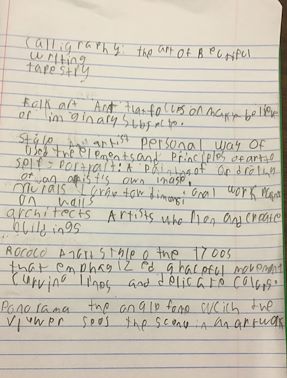 Calligraphy: the art of Beautiful
writing
tapestry
Folk art Art that focuses on make believe
or imaginary
Style artist personal way of
Use the elements and Principles of art
self-Portrait: A Painting or drawing
of an artist's own image.
murals Large two dimensional work
on walls
architects Artists who Plan and create
buildings
Rococo An art style o the 1700s
that emphasized graceful movement
curving lines and delicate colors.
Panorama the angle fono wcich the
viewer sees the scene in an artwork